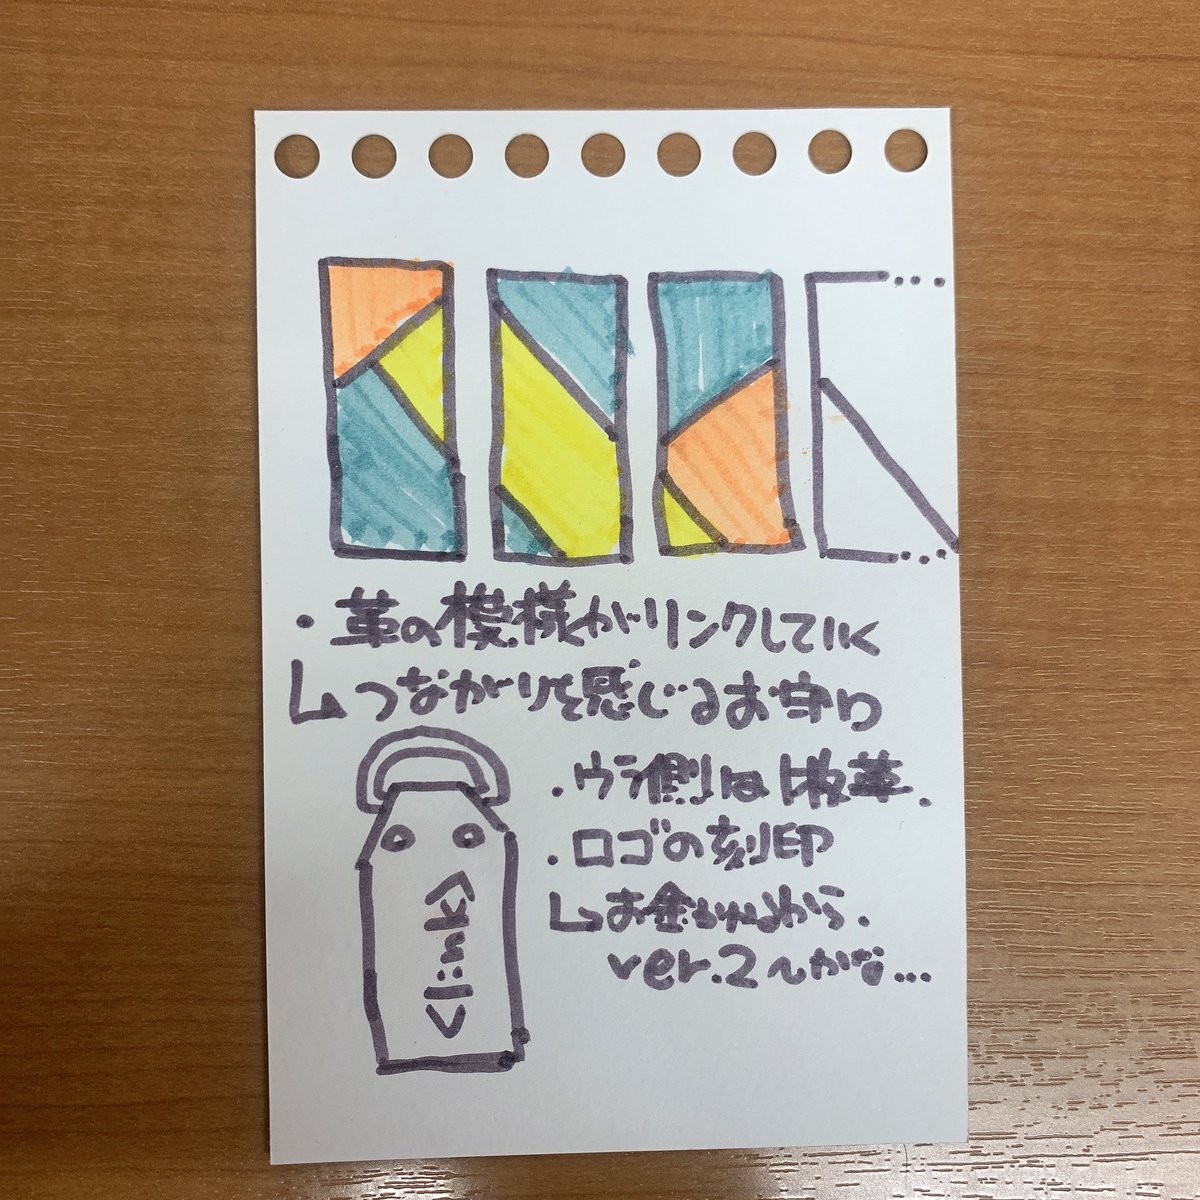 ・革の模様がリンクしていく
↳つながりを感じるお守り
・ウラ側は牛革.
・ロゴの刻印
↳お金かかるから.
ver.2〜かな…
<link>